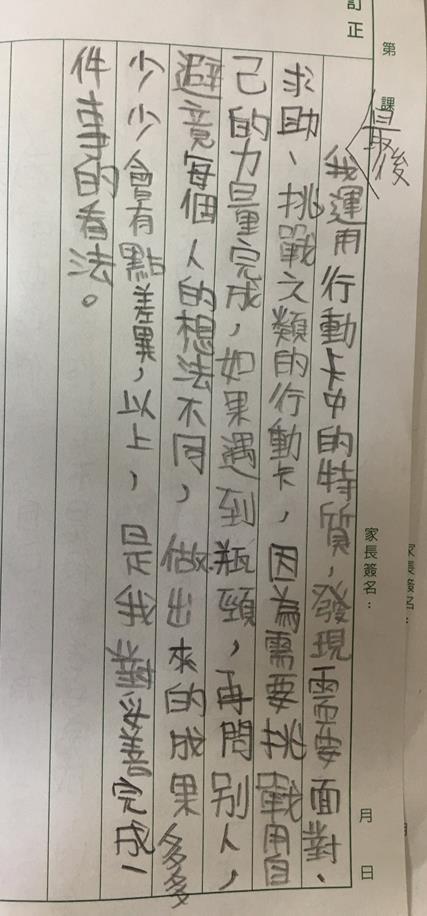 家長簽名：
第 課 家長簽名： 月 日
訂正
最後
我運用行動卡中的特質，發現需要面對、
求助、挑戰之類的行動卡，因為需要挑戰用自
己的力量完成，如果遇到瓶頸，再問別人，
避竟每個人的想法不同，做出來的成果多多
少少會有點差異，以上，是我對妥善完成一
件事的看法。